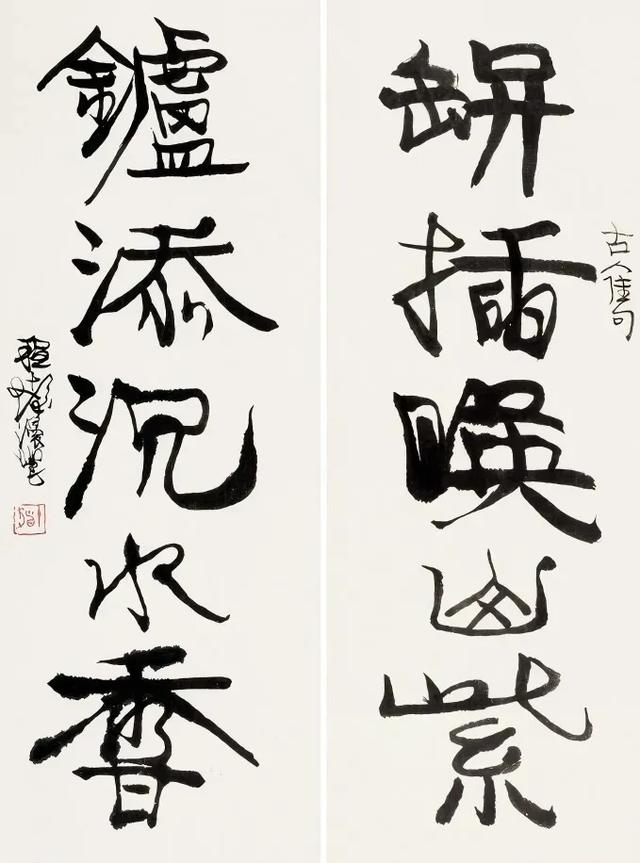 古人佳句
缾插暎山紫
鑪添沉水香
程十髮